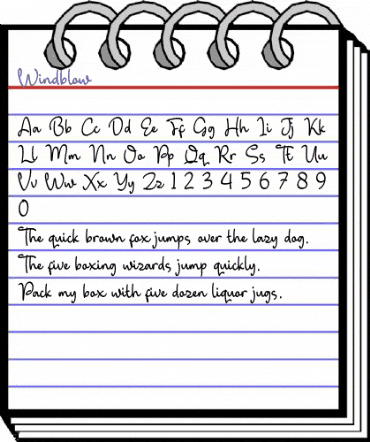 Windblow
Aa Bb Cc Dd Ee Ff Gg Hh Ii Jj Kk
Ll Mm Nn Oo Pp Qq Rr Ss Tt Uu
Vv Ww Xx Yy Zz 1 2 3 4 5 6 7 8 9
0
The quick brown fox jumps over the lazy dog.
The five boxing wizards jump quickly.
Pack my box with five dozen liquor jugs.